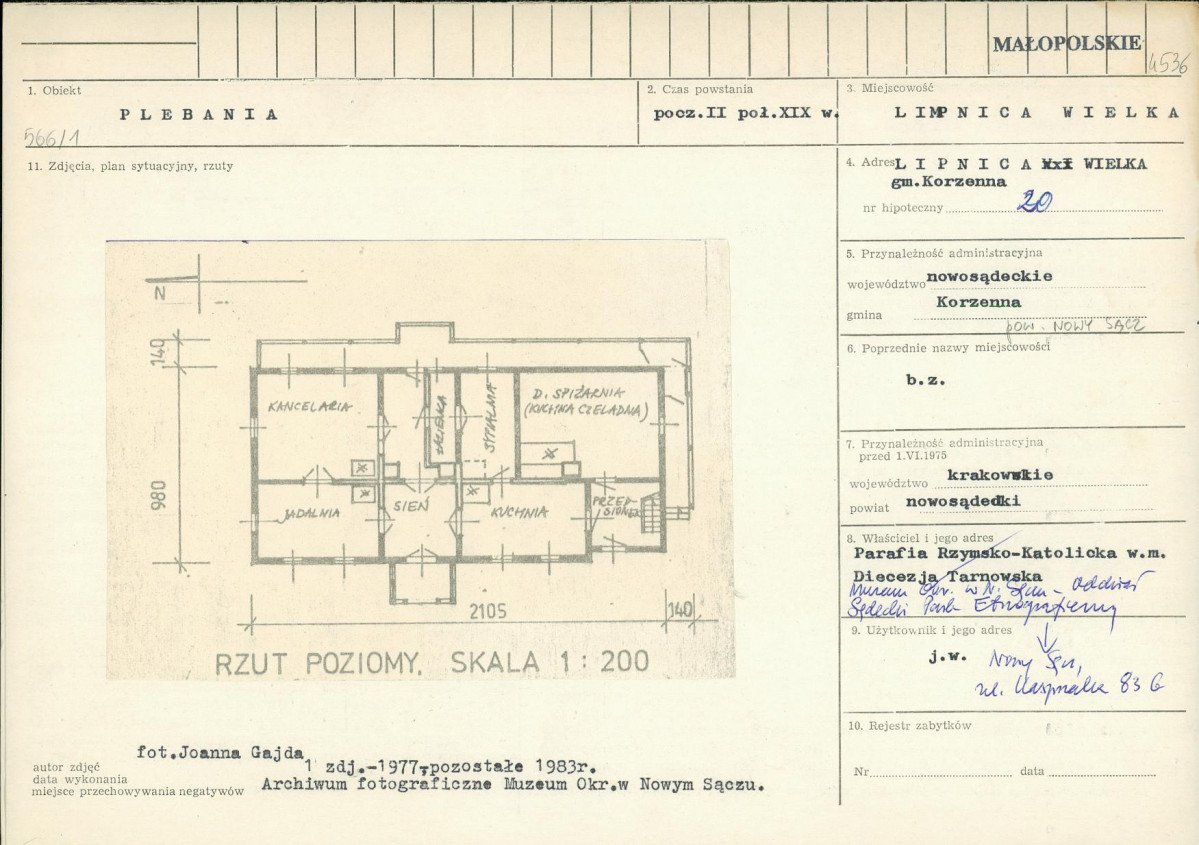 MAŁOPOLSKIE
4536
1. Obiekt
PLEBANIA
566/1
2. Czas powstania
pocz.II poł.XIX w.
3. Miejscowość
LIMPNICA WIELKA
11. Zdjęcia, plan sytuacyjny, rzuty
4. Adres LIPNICA WIELKA
gm.Korzenna
nr hipoteczny 20
5. Przynależność administracyjna
województwo nowosądeckie
Korzenna
gmina
pow. NOWY SĄCZ
6. Poprzednie nazwy miejscowości
b.z.
7. Przynależność administracyjna
przed 1.VI.1975
województwo krakowskie
powiat nowosądecki
8. Właściciel i jego adres
Parafia Rzymsko-Katolicka w.m.
Diecezja Tarnowska
Muzeum Okr. w N. Sączu - oddział
Sądecki Park Etnograficzny
9. Użytkownik i jego adres
j.w. Nowy Sącz,
ul. 83 G
10. Rejestr zabytków
Nr data
N
140
980
KANCELARIA
ŁAZIENKA
SYPIALNIA
D. SPIŻARNIA
(KUCHNIA CZELADNA)
JADALNIA
SIEŃ
KUCHNIA
PRZED-
SIONEK
2105
140
RZUT POZIOMY. SKALA 1 : 200
fot.Joanna Gajda
1 zdj.-1977,pozostałe 1983r.
Archiwum fotograficzne Muzeum Okr.w Nowym Sączu.
autor zdjęć
data wykonania
miejsce przechowywania negatywów